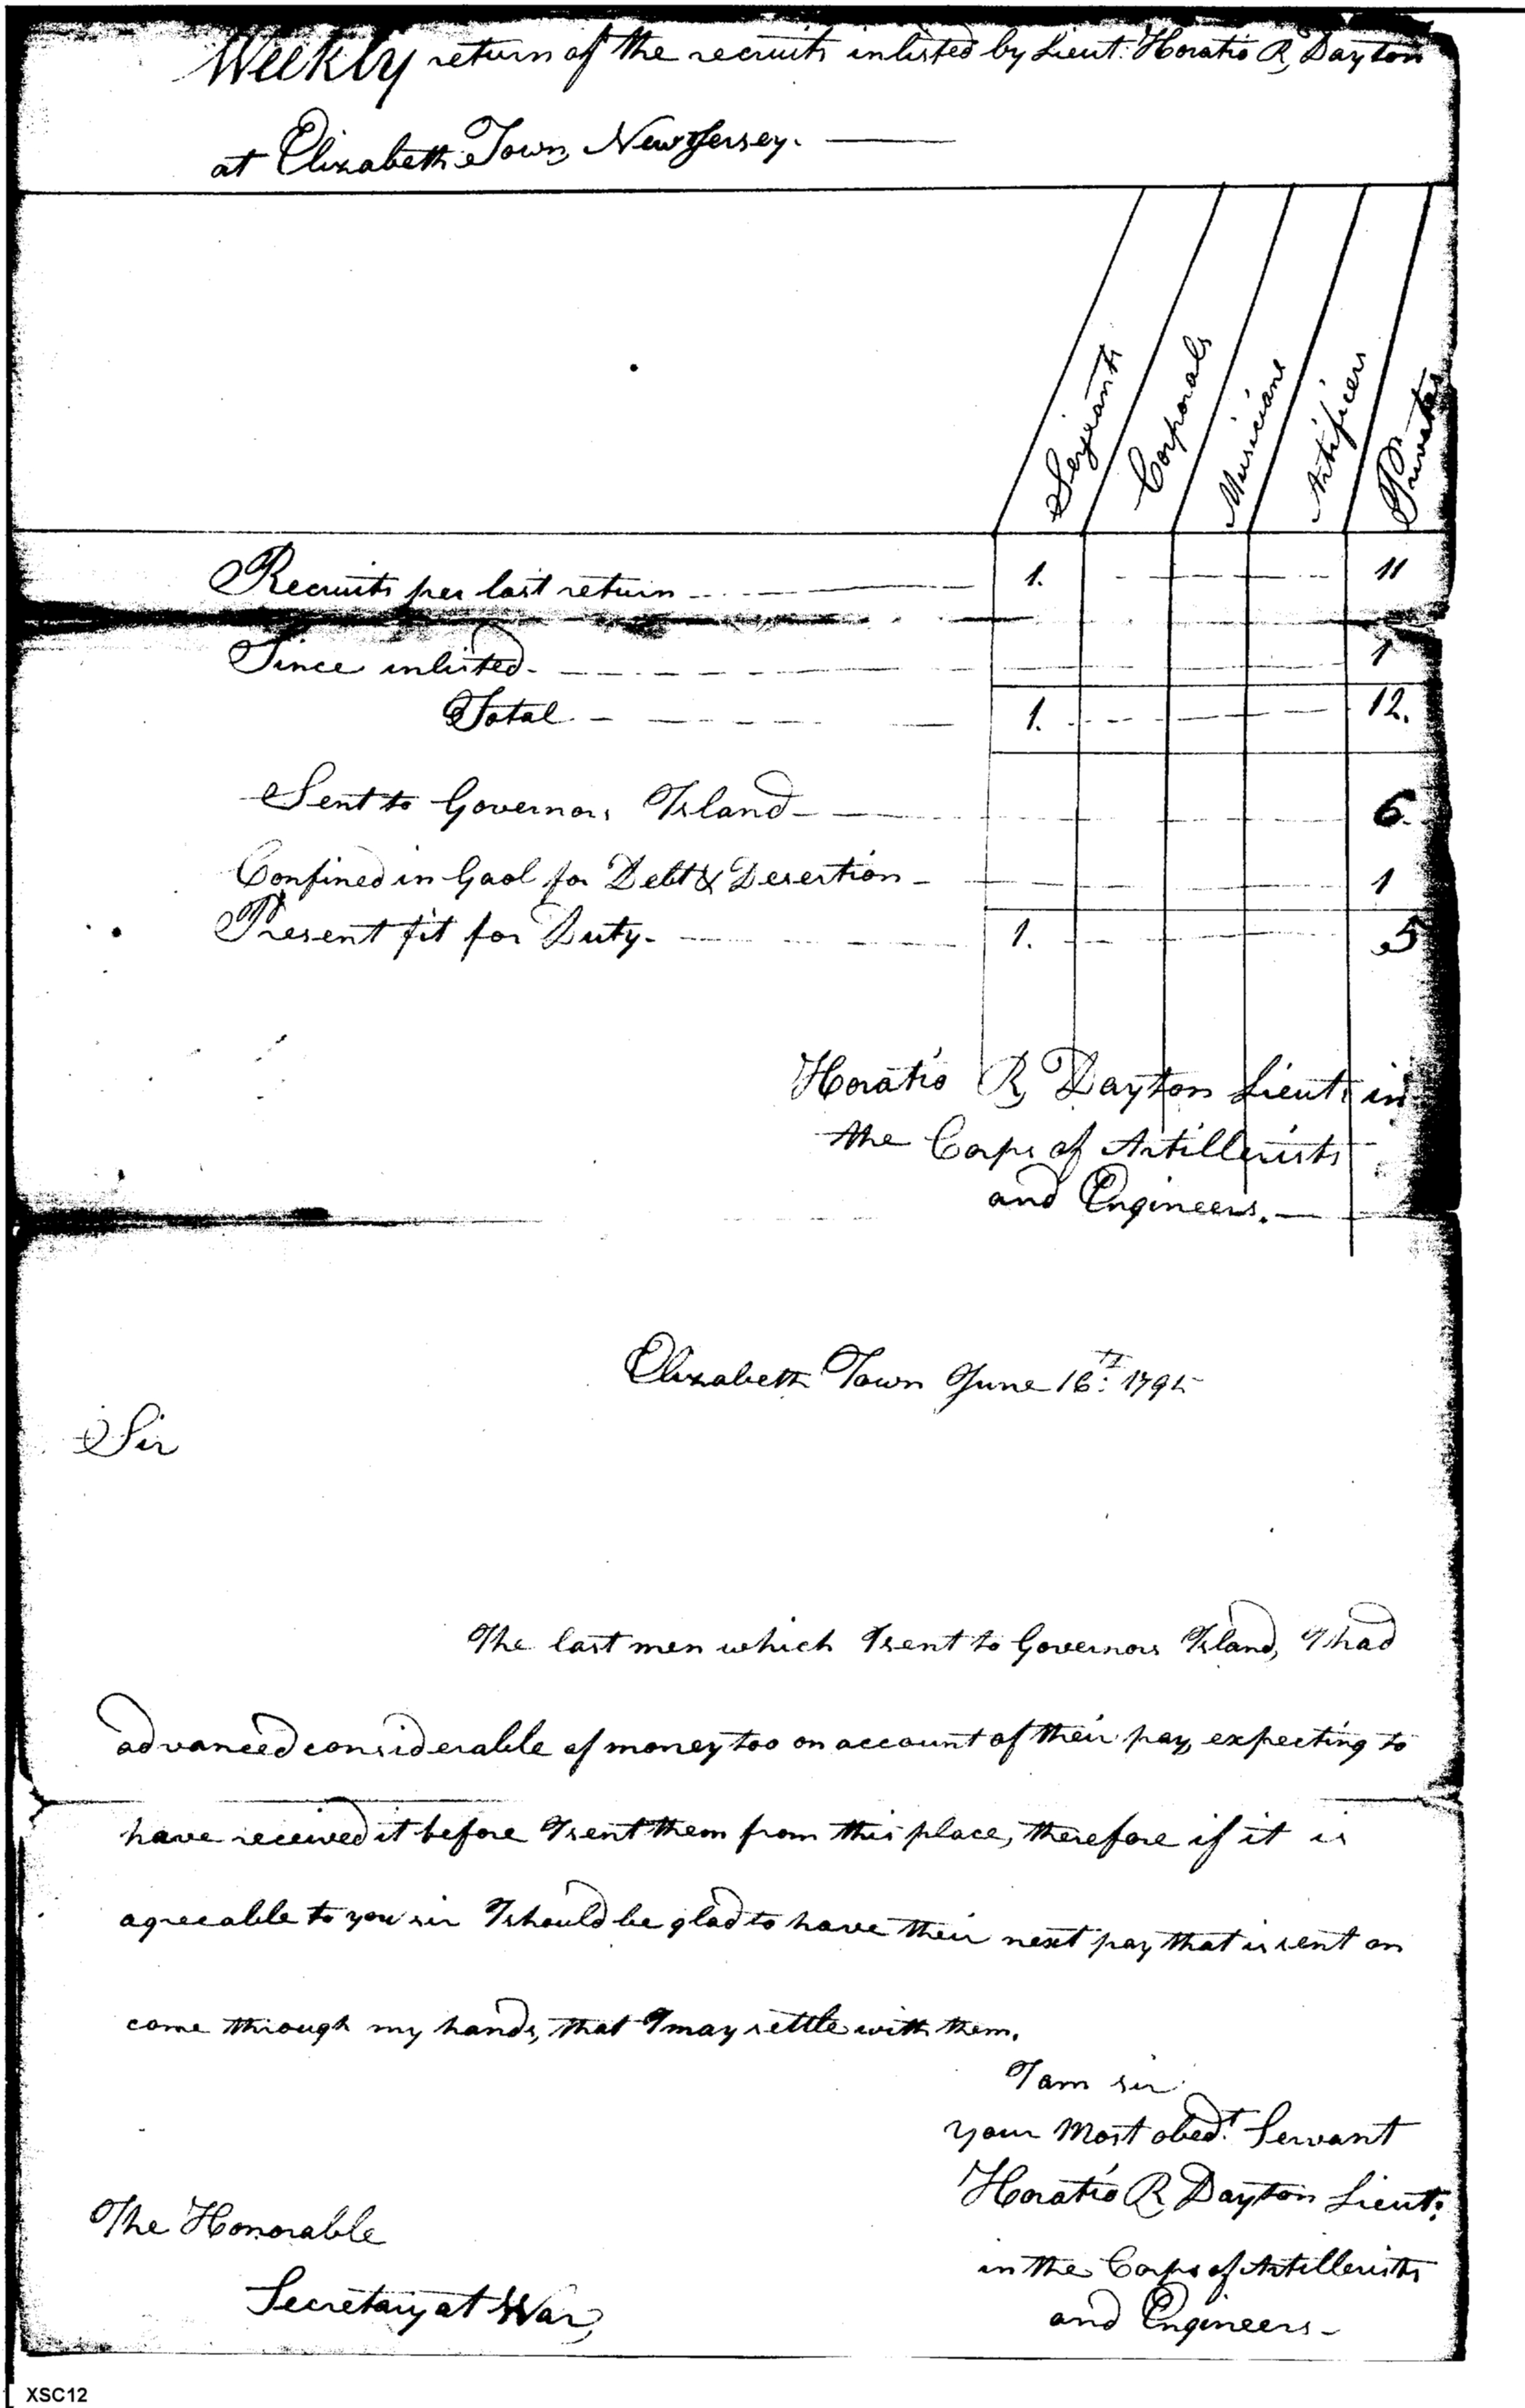 Weekly return of the recruits inlisted by Lieut: Horatio R, Dayton
at Elizabeth Town, New Jersey.
Serjeants Corporals Musicians Artificers Privates
Recruits per last return 1. 11
Since inlisted. 1
Total 1. 12.
Sent to Governors Island 6.
Confined in Gaol for Debt & Desertion 1
Present fit for Duty. 1. 5
Horatio R, Dayton Lieut: in
the Corps of Artillerists
and Engineers.
Elizabeth Town June 16th: 1795
Sir
The last men which I sent to Governors Island, I had
advanced considerable of money too on account of their pay, expecting to
have received it before I sent them from this place, therefore if it is
agreeable to you sir I should be glad to have their next pay that is sent on
come through my hands, that I may settle with them.
I am sir
your Most obedt. Servant
Horatio R Dayton Lieut:
in the Corps of Artillerists
and Engineers
The Honorable
Secretary at War,
XSC12